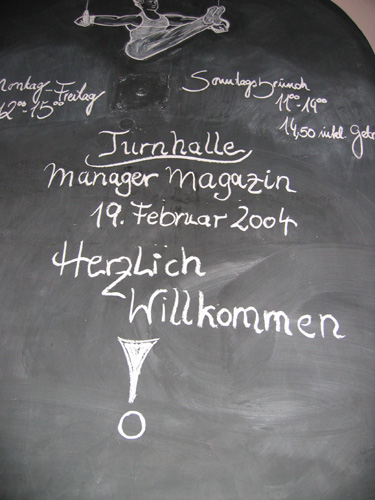 Montag-Freitag
12⁰⁰-15⁰⁰
Sonntagsbrunch
11⁰⁰-14⁰⁰
14,50 inkl. Getr
Turnhalle
Manager Magazin
19. Februar 2004
Herzlich
Willkommen
!